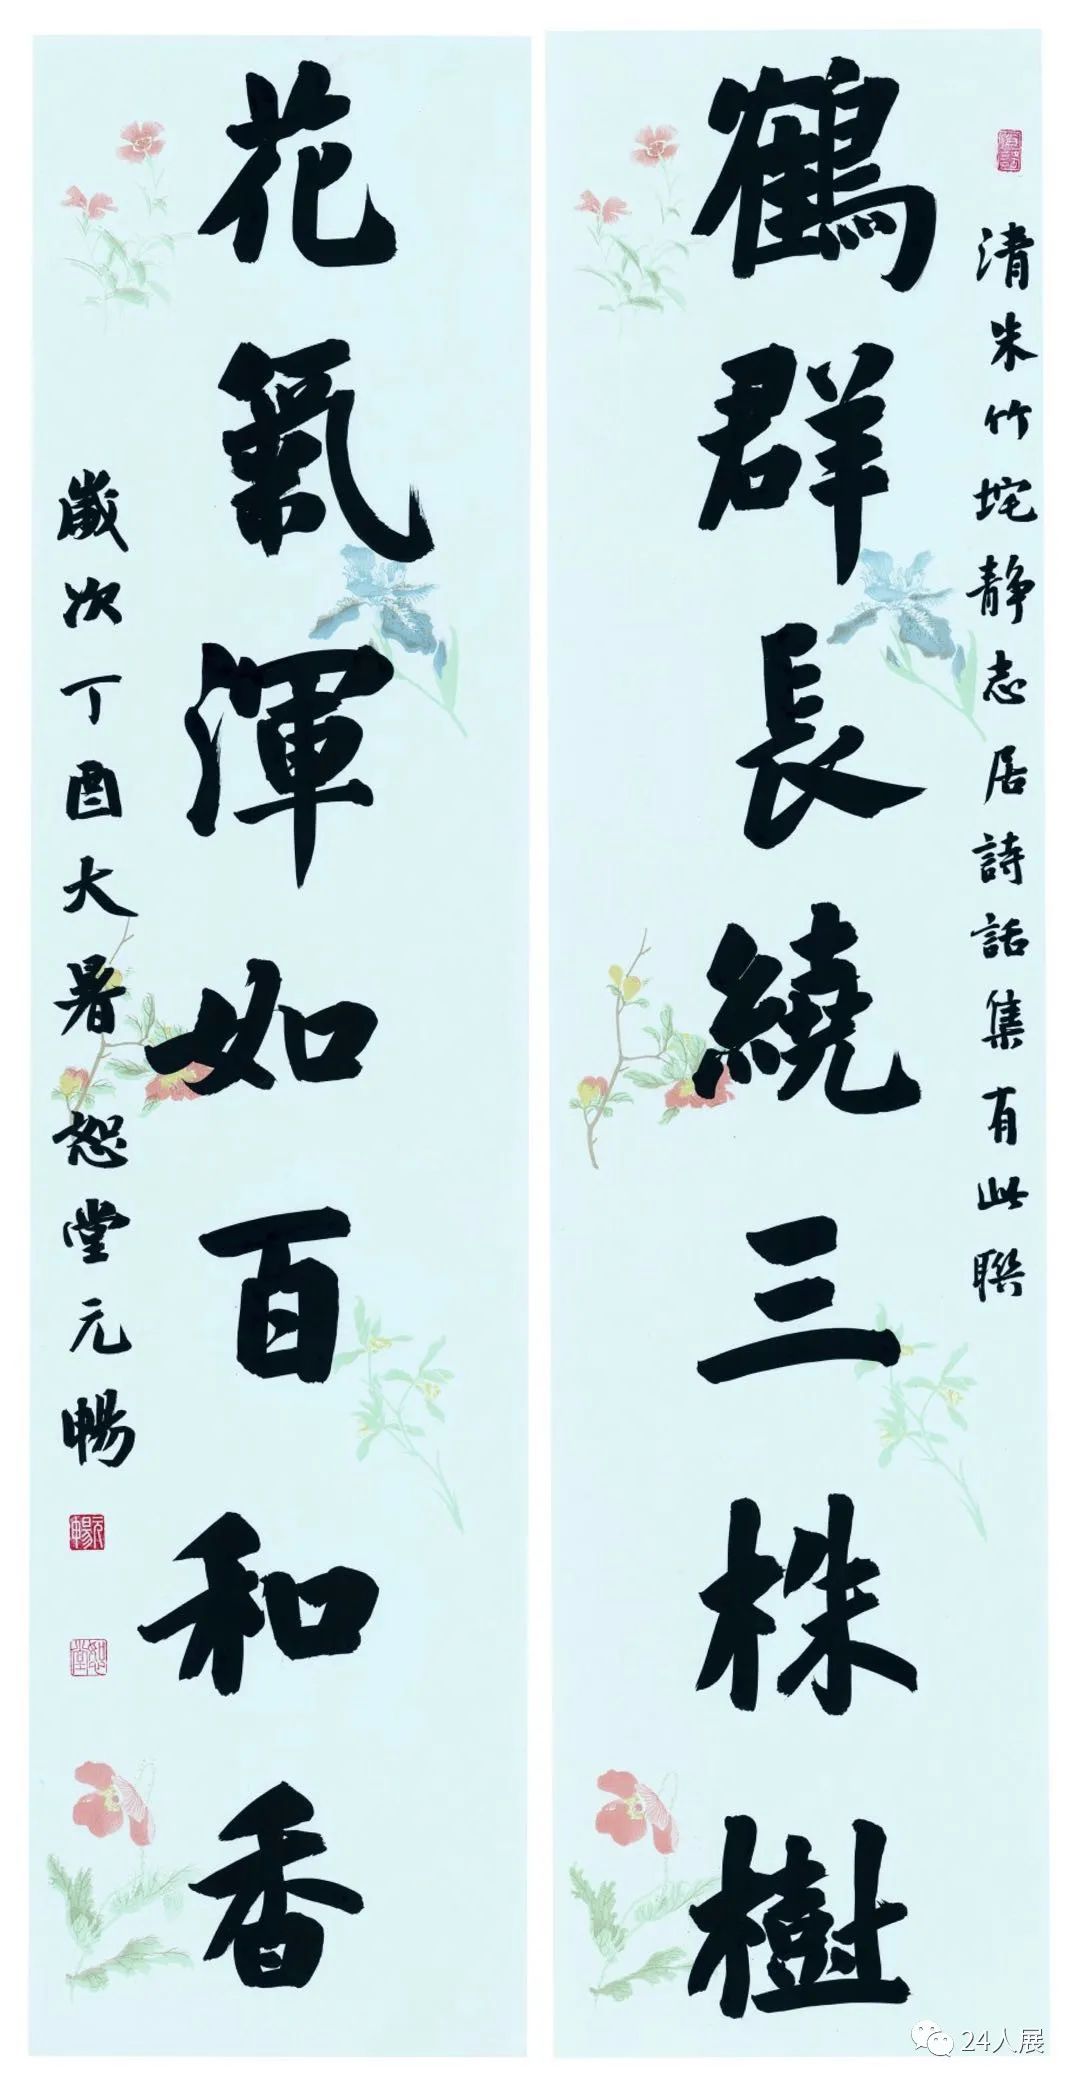 清朱竹垞静志居詩話集有此聯
鶴群長繞三株樹
花氣渾如百和香
歲次丁酉大暑恕堂元暢
元暢
恕堂
24人展